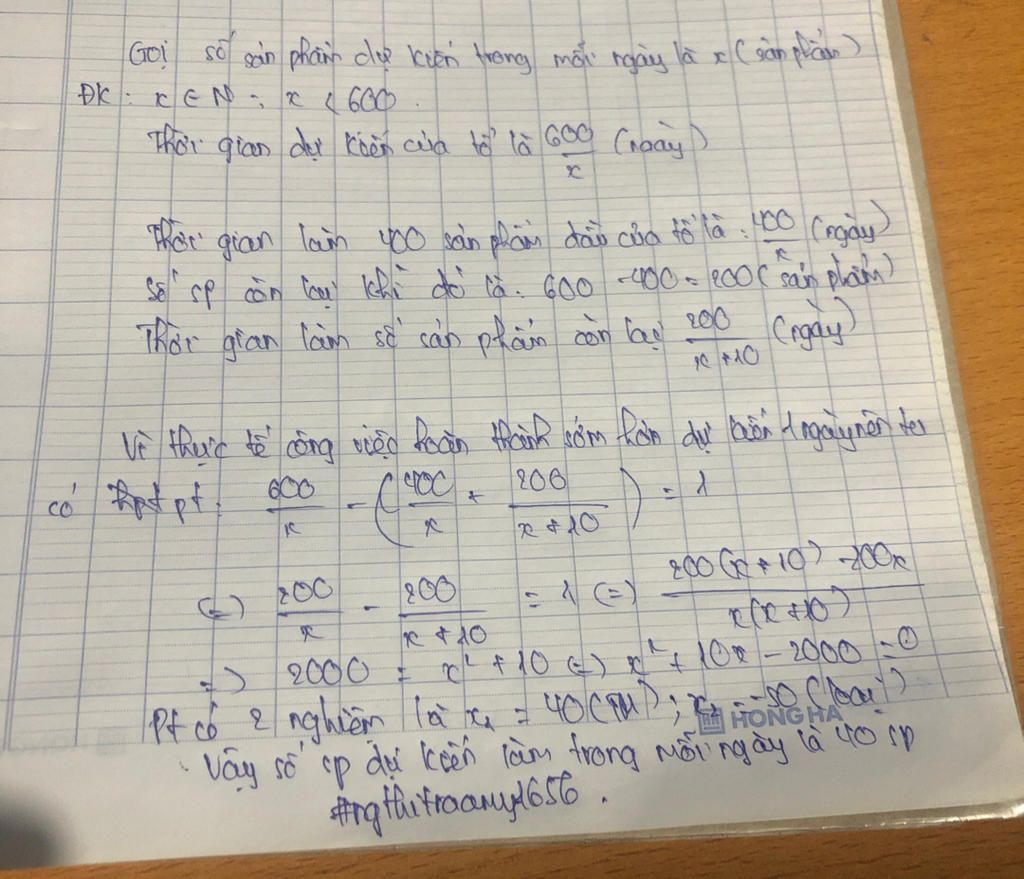 Gọi số sản phẩm dự kiến trong mỗi ngày là x (sản phẩm)
ĐK: x ∈ N; x < 600.
Thời gian dự kiến của tổ là 600/x (ngày)
Thời gian làm 400 sản phẩm đầu của tổ là: 400/x (ngày)
Số sp còn lại khi đó là: 600 - 400 = 200 (sản phẩm)
Thời gian làm số sản phẩm còn lại 200/(x+10) (ngày)
Vì thực tế công việc hoàn thành sớm hơn dự kiến 1 ngày nên ta
có pt: 600/x - (400/x + 200/(x+10)) = 1
(=) 200/x - 200/(x+10) = 1 (=) (200(x+10) - 200x)/(x(x+10))
=) 2000 = x² + 10 (=) x² + 10x - 2000 = 0
Pt có 2 nghiệm là x₁ = 40 (TM); x₂ = -50 (loại)
HONG HA
Vậy số sp dự kiến làm trong mỗi ngày là 40 sp